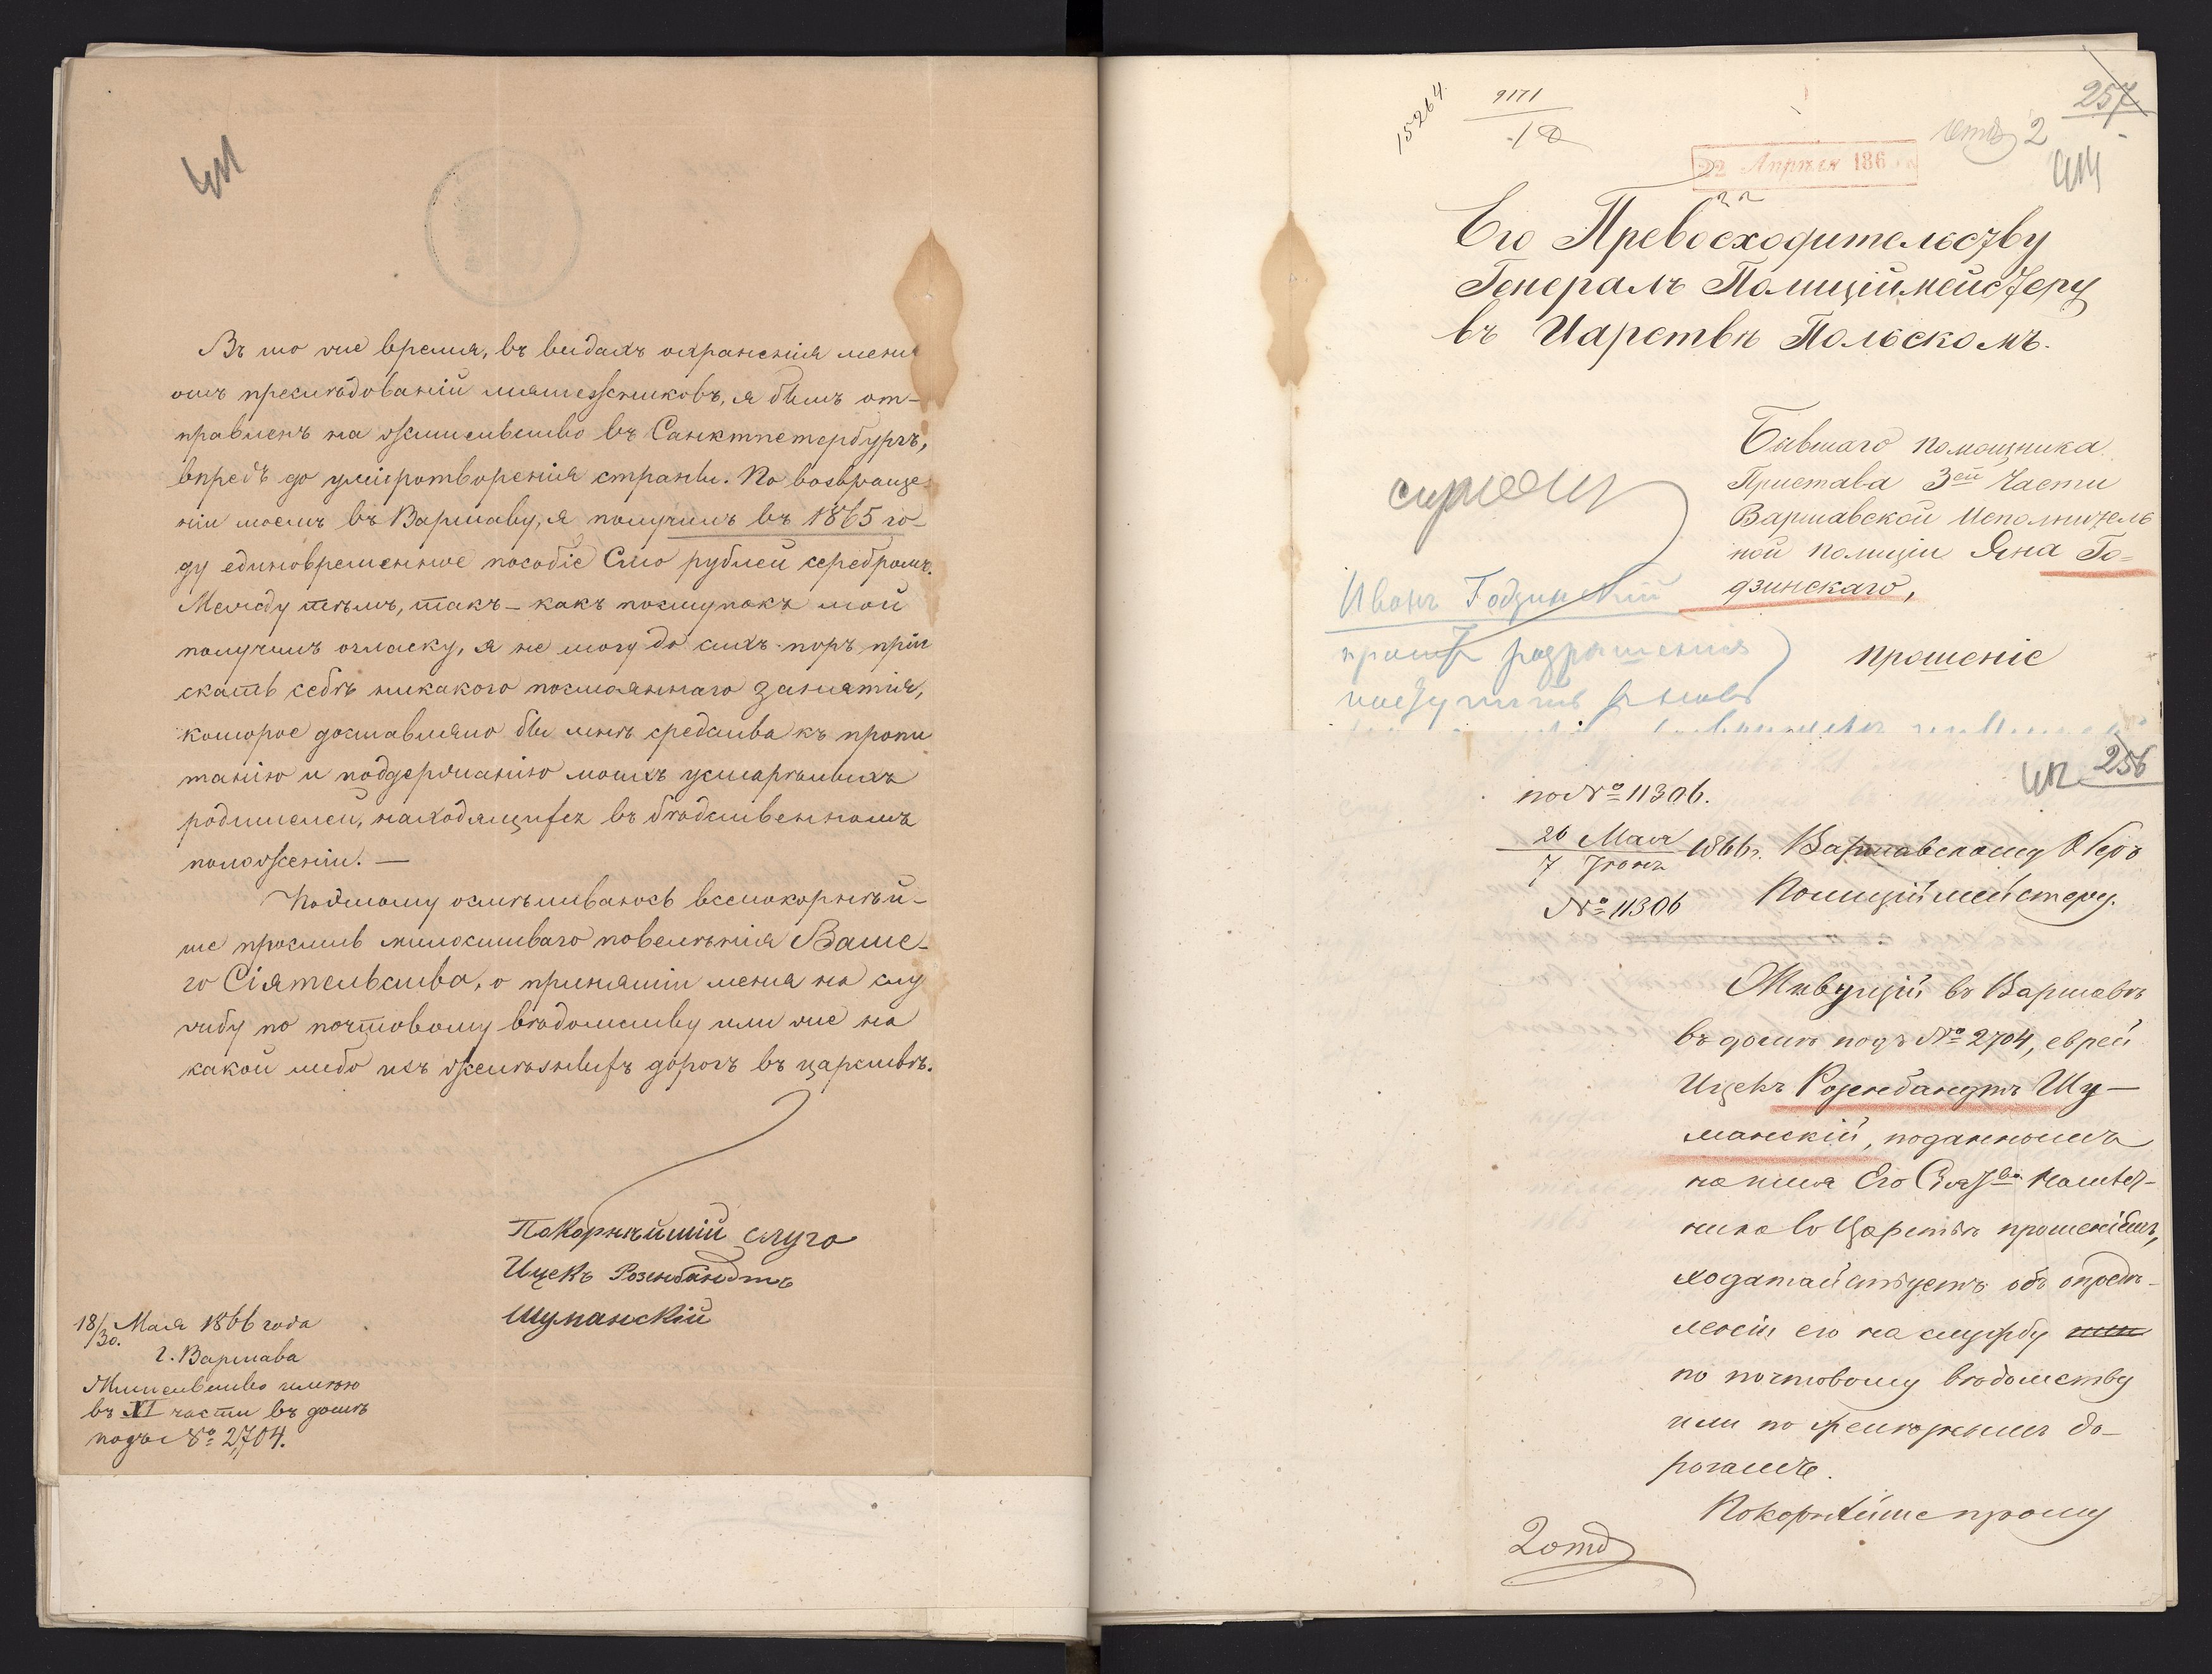 411
Въ то же время, въ видахъ охраненія меня
отъ преслѣдованій мятежниковъ, я былъ от-
правленъ на жительство въ Санктпетербургъ,
впредъ до умиротворенія страны. По возвраще-
ніи моемъ въ Варшаву, я получилъ въ 1865 го-
ду единовременное пособіе Сто рублей серебромъ.
Между тѣмъ, такъ-какъ поступокъ мой
получилъ огласку, я не могу до сихъ-поръ прiи
скать себѣ никакого постояннаго занятія,
которое доставляло бы мнѣ средства къ пропи
танію и поддержанію моихъ устарѣлыхъ
родителей, находящихся въ бѣдственномъ
положеніи. —
Поэтому осмѣливаюсь всепокорнѣй-
ше просить милостиваго повелѣнія Ваше-
го Сіятельства, о принятіи меня на слу
жбу по почтовому вѣдомству или же на
какой либо изъ желѣзныхъ дорогъ въ царствѣ.
Покорнѣйшій слуга
Ицекъ Розенбандтъ
Шуманскій
18/30. Мая 1866 года
г. Варшава
Жительство имѣю
въ XI части въ домѣ
подъ № 2,704.
15264.
9171
257
2
22 Апрѣля 186
Его Превосходительству
Генералъ Полиціймейстеру
въ Царствѣ Польскомъ.
Бывшаго помощника
Пристава 3ей Части
Варшавской Исполнитель
ной полиціи Яна Го=
дзинскаго,
прошеніе
Иванъ Годзинскій
проситъ разрѣшенія
поступить
412 256
по № 11306.
26 Мая
7 Іюня 1866 г.
№ 11306
Варшавскому Оберъ
Полиціймейстеру.
Живущій въ Варшавѣ
въ домѣ подъ № 2704, еврей
Ицекъ Розенбандтъ Шу—
манскій, поданнымъ
на имя Его Сіят-ва Намѣст-
ника въ Царствѣ прошеніемъ,
ходатайствуетъ объ опредѣ-
леніи его на службу
по почтовому вѣдомству
или по желѣзнымъ до-
рогамъ.
Покорнѣйше прошу
2 отд